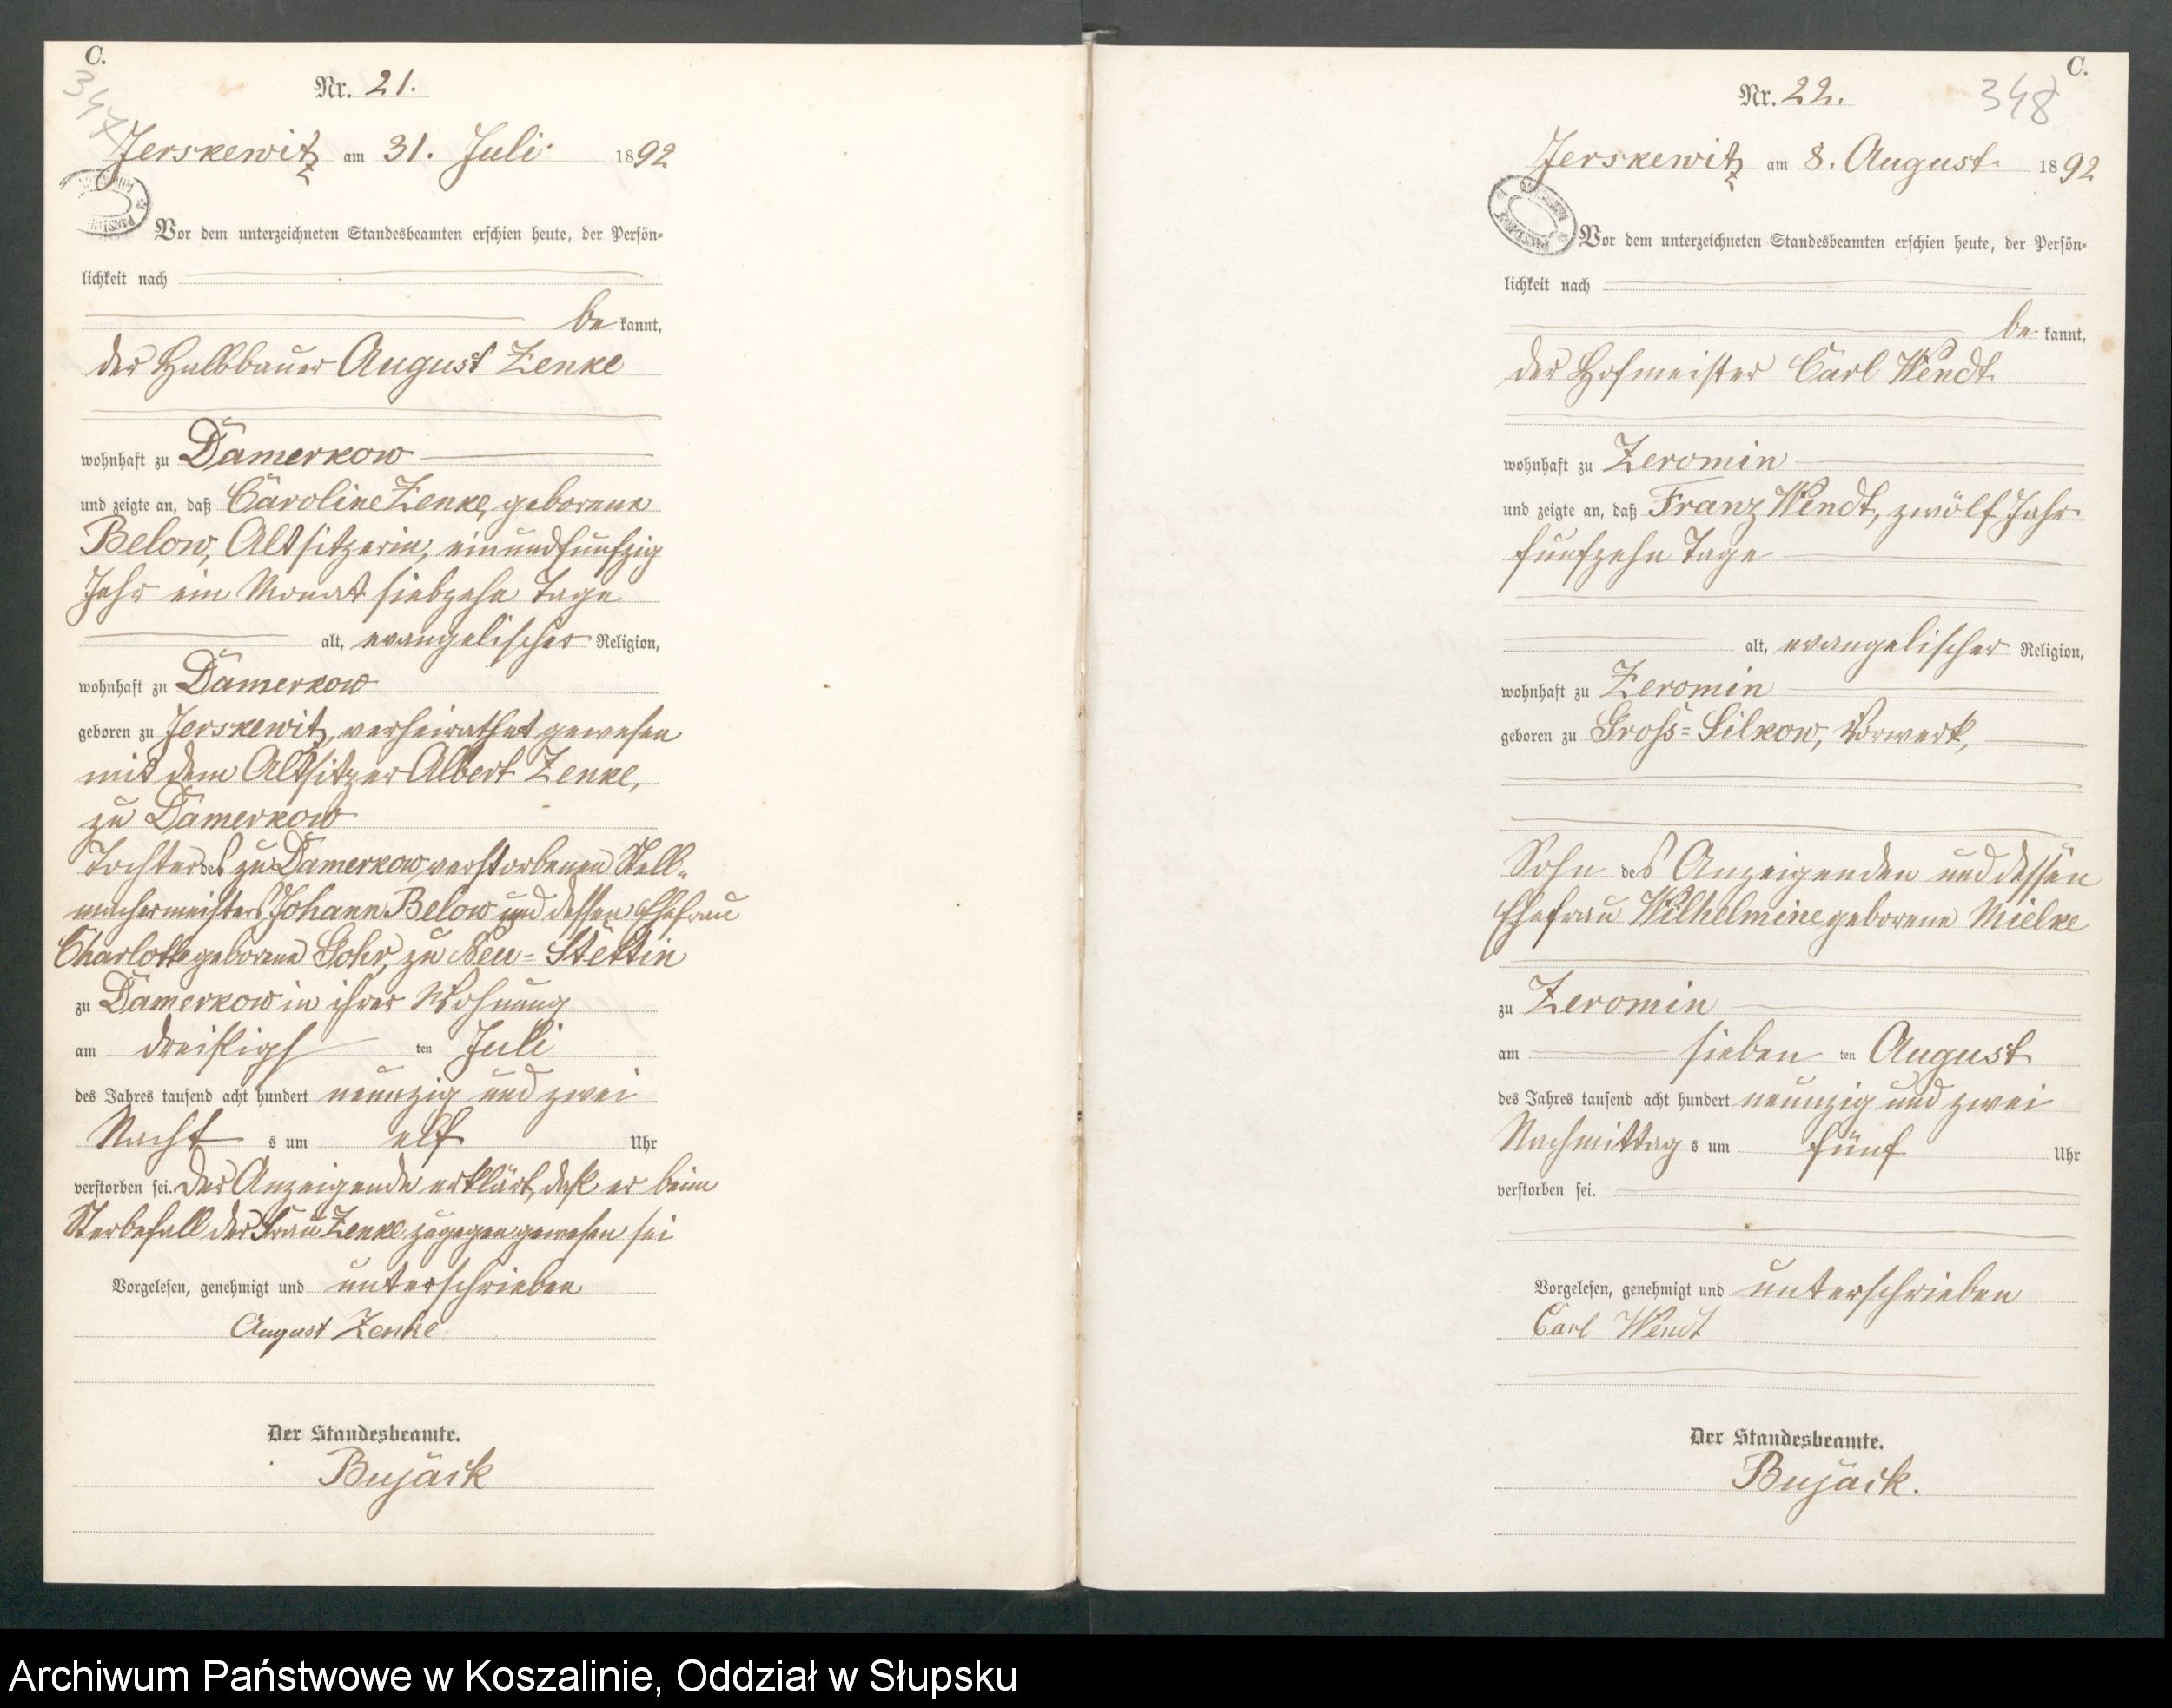 C.
347
Nr. 21.
Jerskewitz am 31. Juli 1892
Vor dem unterzeichneten Standesbeamten erschien heute, der Persön-
lichkeit nach
be kannt,
der Halbbauer August Zenke
wohnhaft zu Damerkow
und zeigte an, daß Caroline Zenke, geborene
Below, Altsitzerin, einundfunfzig
Jahr ein Monat siebzehn Tage
alt, evangelischer Religion,
wohnhaft zu Damerkow
geboren zu Jerskewitz, verheirathet gewesen
mit dem Altsitzer Albert Zenke,
zu Damerkow
Tochter des zu Damerkow verstorbenen Stell-
machermeisters Johann Below und dessen Ehefrau
Charlotte geborene Gohr, zu Neu-Stettin
zu Damerkow in ihrer Wohnung
am dreißigs ten Juli
des Jahres tausend acht hundert neunzig und zwei
Nacht s um elf Uhr
verstorben sei. Der Anzeigende erklärt, daß er beim
Sterbefall der Frau Zenke zugegen gewesen sei
Vorgelesen, genehmigt und unterschrieben
August Zenke.
Der Standesbeamte.
Bujack
C.
348
Nr. 22.
Jerskewitz am 8. August 1892
Vor dem unterzeichneten Standesbeamten erschien heute, der Persön-
lichkeit nach
be kannt,
der Hofmeister Carl Wendt
wohnhaft zu Zeromin
und zeigte an, daß Franz Wendt, zwölf Jahr
funfzehn Tage
alt, evangelischer Religion,
wohnhaft zu Zeromin
geboren zu Gross-Silkow, Vorwerk,
Sohn des Anzeigenden und dessen
Ehefrau Wilhelmine geborene Mielke
zu Zeromin
am sieben ten August
des Jahres tausend acht hundert neunzig und zwei
Nachmittag s um fünf Uhr
verstorben sei.
Vorgelesen, genehmigt und unterschrieben
Carl Wendt
Der Standesbeamte.
Bujack.
Archiwum Państwowe w Koszalinie, Oddział w Słupsku